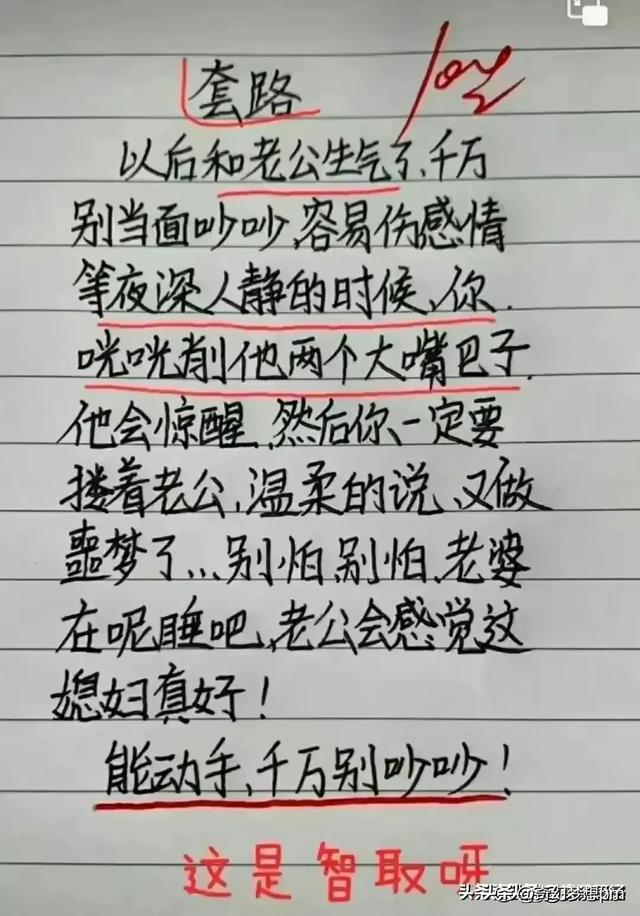 套路
以后和老公生气了、千万
别当面吵吵,容易伤感情
等夜深人静的时候、你.
咣咣削他两个大嘴巴子.
他会惊醒,然后你、一定要
搂着老公,温柔的说、又做
噩梦了...别怕,别怕、老婆
在呢睡吧,老公会感觉这
媳妇真好!
能动手、千万别吵吵!
这是智取呀